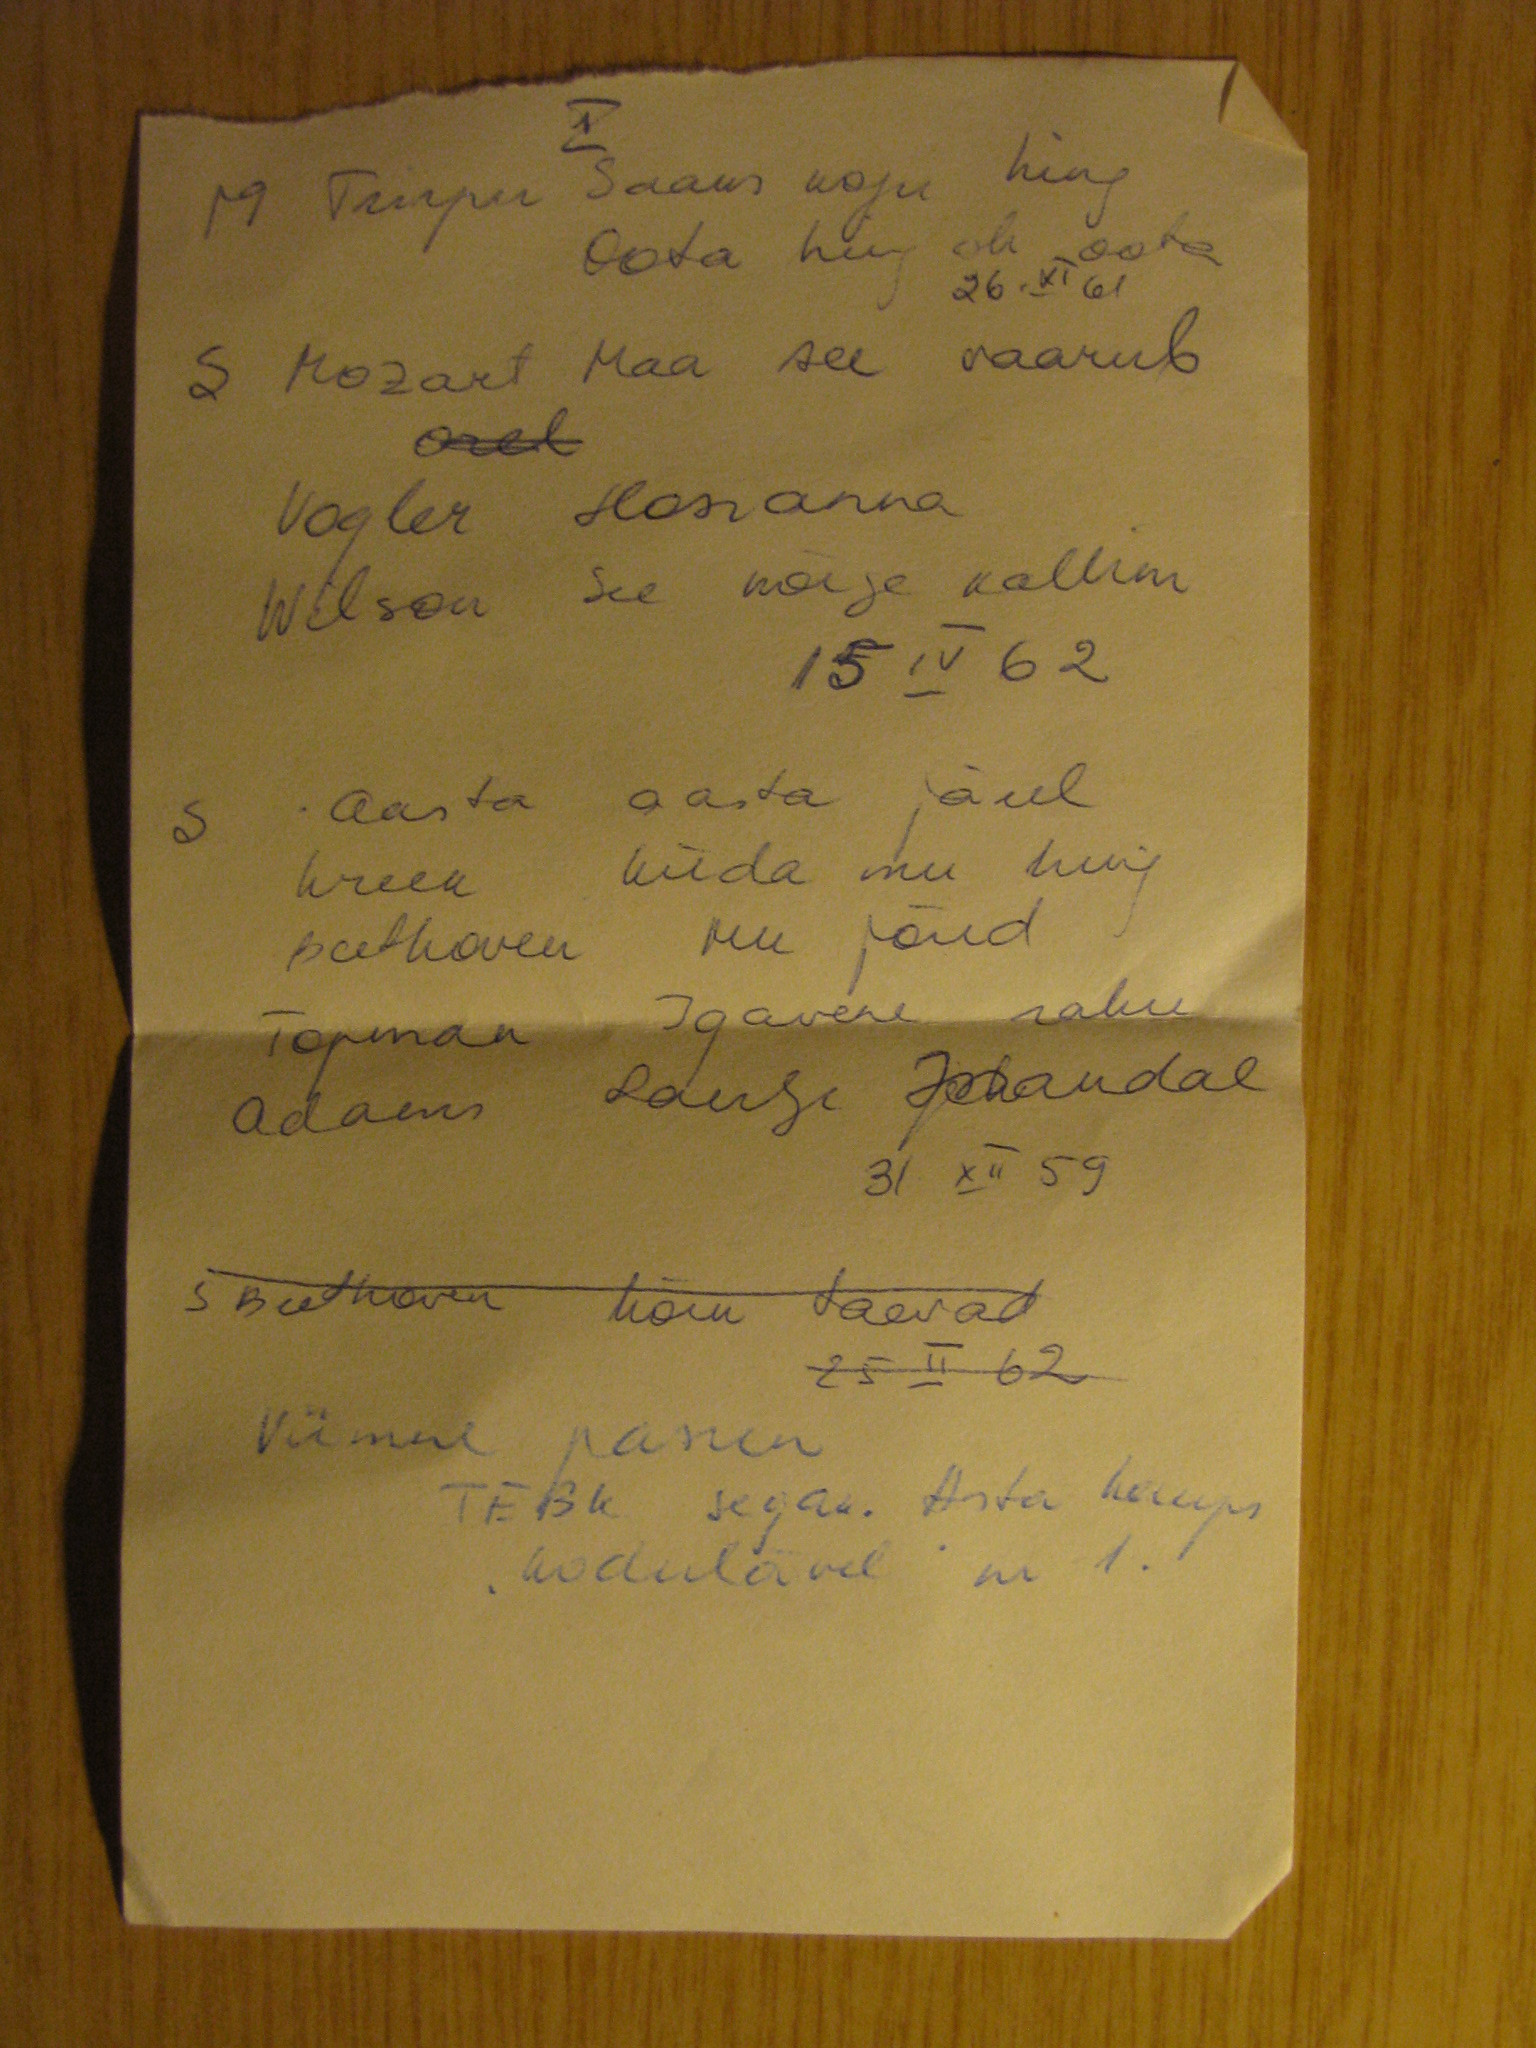 I
M Tiirpu Saaks koju hing
Oota hing oh oota
26. XI 61
S Mozart Maa see vaarub
orel
Vogler Hosianna
Wilson See kõige kallim
15 IV 62
S Aasta aasta järel
Kreek Kiida mu hing
Beethoven Mu jõud
Topman Igavene rahu
Adams Laulge Jehaudal
31 XII 59
S Beethoven Kõik taevad
25 II 62
Viimne
TEBK segak. Asta Kamps
Kodutävel nr 1.